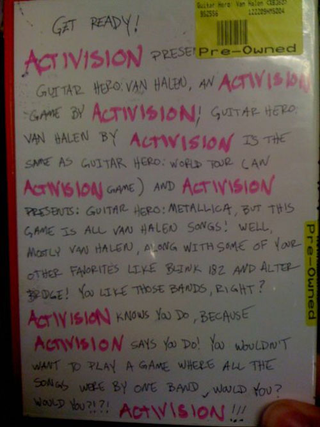 Guitar Hero: Van Halen
Pre-Owned
GET READY!
ACTIVISION PRESE
GUITAR HERO: VAN HALEN, AN ACTIVISION
GAME BY ACTIVISION! GUITAR HERO:
VAN HALEN BY ACTIVISION IS THE
SAME AS GUITAR HERO: WORLD TOUR (AN
ACTIVISION GAME) AND ACTIVISION
PRESENTS: GUITAR HERO: METALLICA, BUT THIS
GAME IS ALL VAN HALEN SONGS! WELL,
MOSTLY VAN HALEN, ALONG WITH SOME OF YOUR
OTHER FAVORITES LIKE BLINK 182 AND ALTER
BRIDGE! YOU LIKE THOSE BANDS, RIGHT?
ACTIVISION KNOWS YOU DO, BECAUSE
ACTIVISION SAYS YOU DO! YOU WOULDN'T
WANT TO PLAY A GAME WHERE ALL THE
SONGS WERE BY ONE BAND, WOULD YOU?
WOULD YOU?!?! ACTIVISION!!!
Pre-Owned